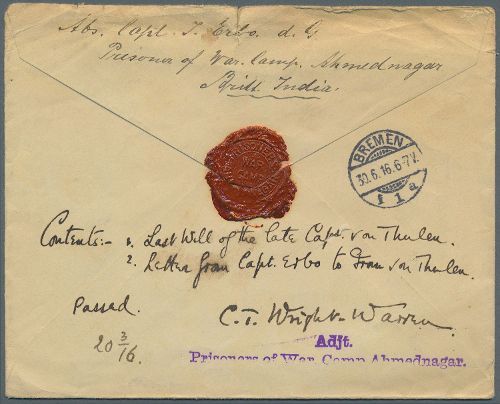 Abs. Capt. J. Erbo d. G
Prisoner of War. Camp. Ahmednagar
Britt. India.
WAR
CAMP
BREMEN
30.6.16.6-7V.
1 a
Contents:- 1. Last Will of the late Capt. von Thulen.
2. Letter from Capt. Erbo to Frau von Thulen.
Passed.
C. T. Wright-Warren
20 3/16.
Adjt.
Prisoners of War Camp Ahmednagar.